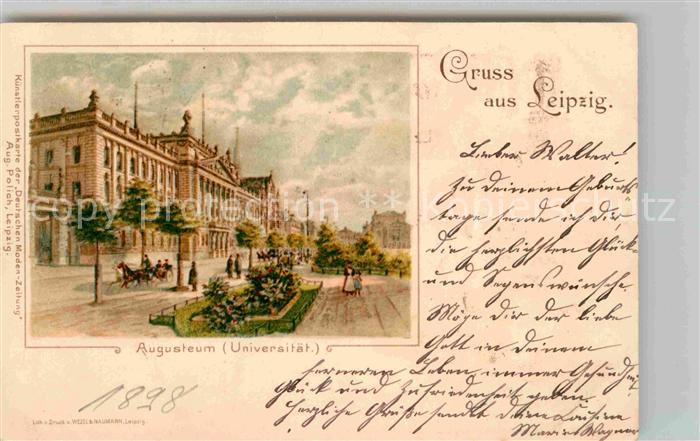 Gruss
aus Leipzig.
Lieber Walter!
Zu deinem Geburts
tage sende ich dir
die herzlichsten Glück-
und Segenswünsche.
Möge dir der liebe
Gott in deinem
ferneren Leben immer Gesundheit
Glück und Zufriedenheit geben.
Herzliche Grüße sendet deine Cousine
Marie Wagner
Künstlerpostkarte der „Deutschen Moden-Zeitung“
Aug. Polich, Leipzig.
Augusteum (Universität.)
1898
Lith. u. Druck v. WEZEL & NAUMANN, Leipzig.
copy protection ** copy protection